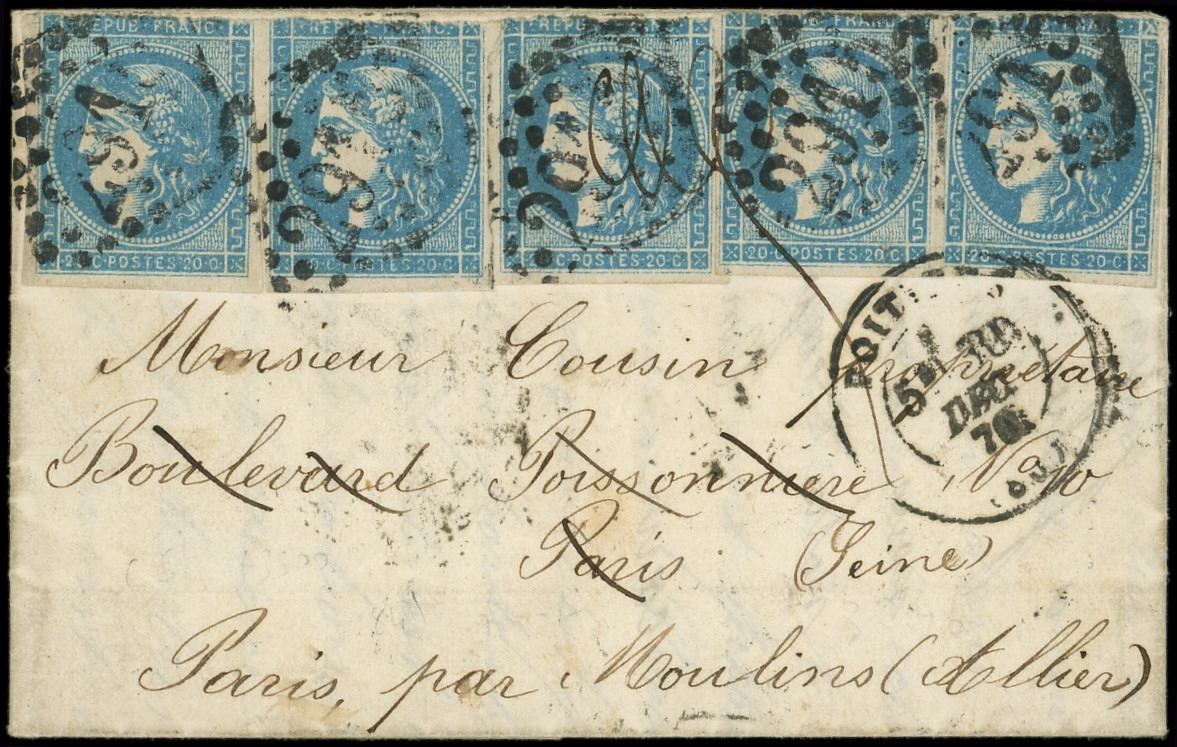 REPUB FRANC. REPUB FRANC. REPUB FRANC. REPUB FRANC.
2915 291 291 2915 2915
20 C POSTES 20 C 20 C POSTES 20 C 20 C POSTES 20 C 20 C POSTES 20 C 20 C POSTES 20 C
POIT
5E
DEC
70
Monsieur Cousin propriétaire
Boulevard Poissonnière No 10
Paris (Seine)
Paris, par Moulins (Allier)